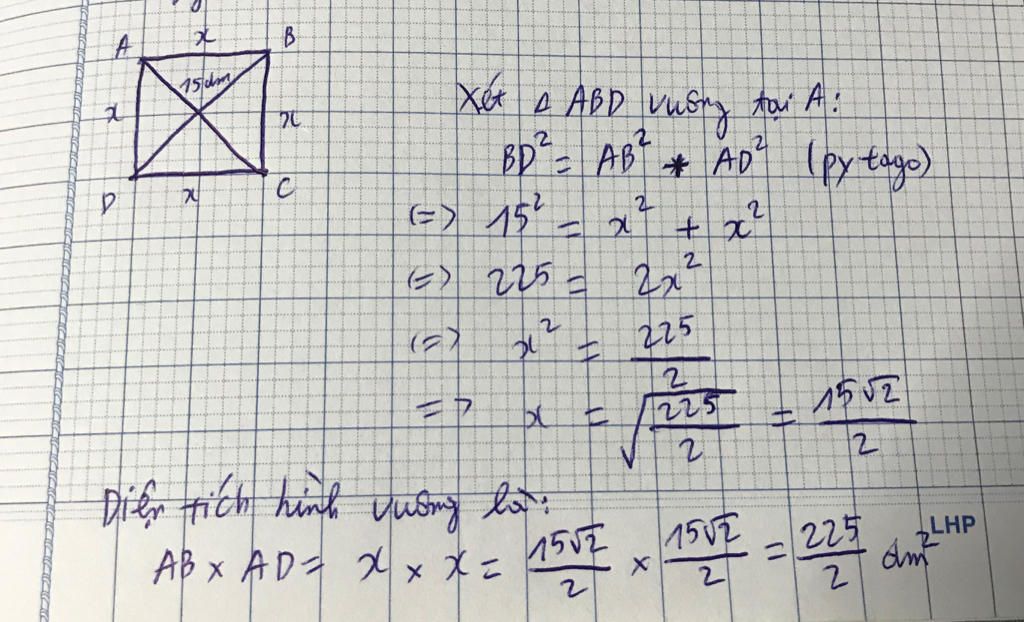 A x B
15dm
x x
D x C
Xét Δ ABD vuông tại A:
BD² = AB² * AD² (pytago)
(=) 15² = x² + x²
(=) 225 = 2x²
(=) x² = 225/2
=> x = √(225/2) = 15√2/2
Diện tích hình vuông là:
AB x AD = x x x = 15√2/2 x 15√2/2 = 225/2 dm²
LHP